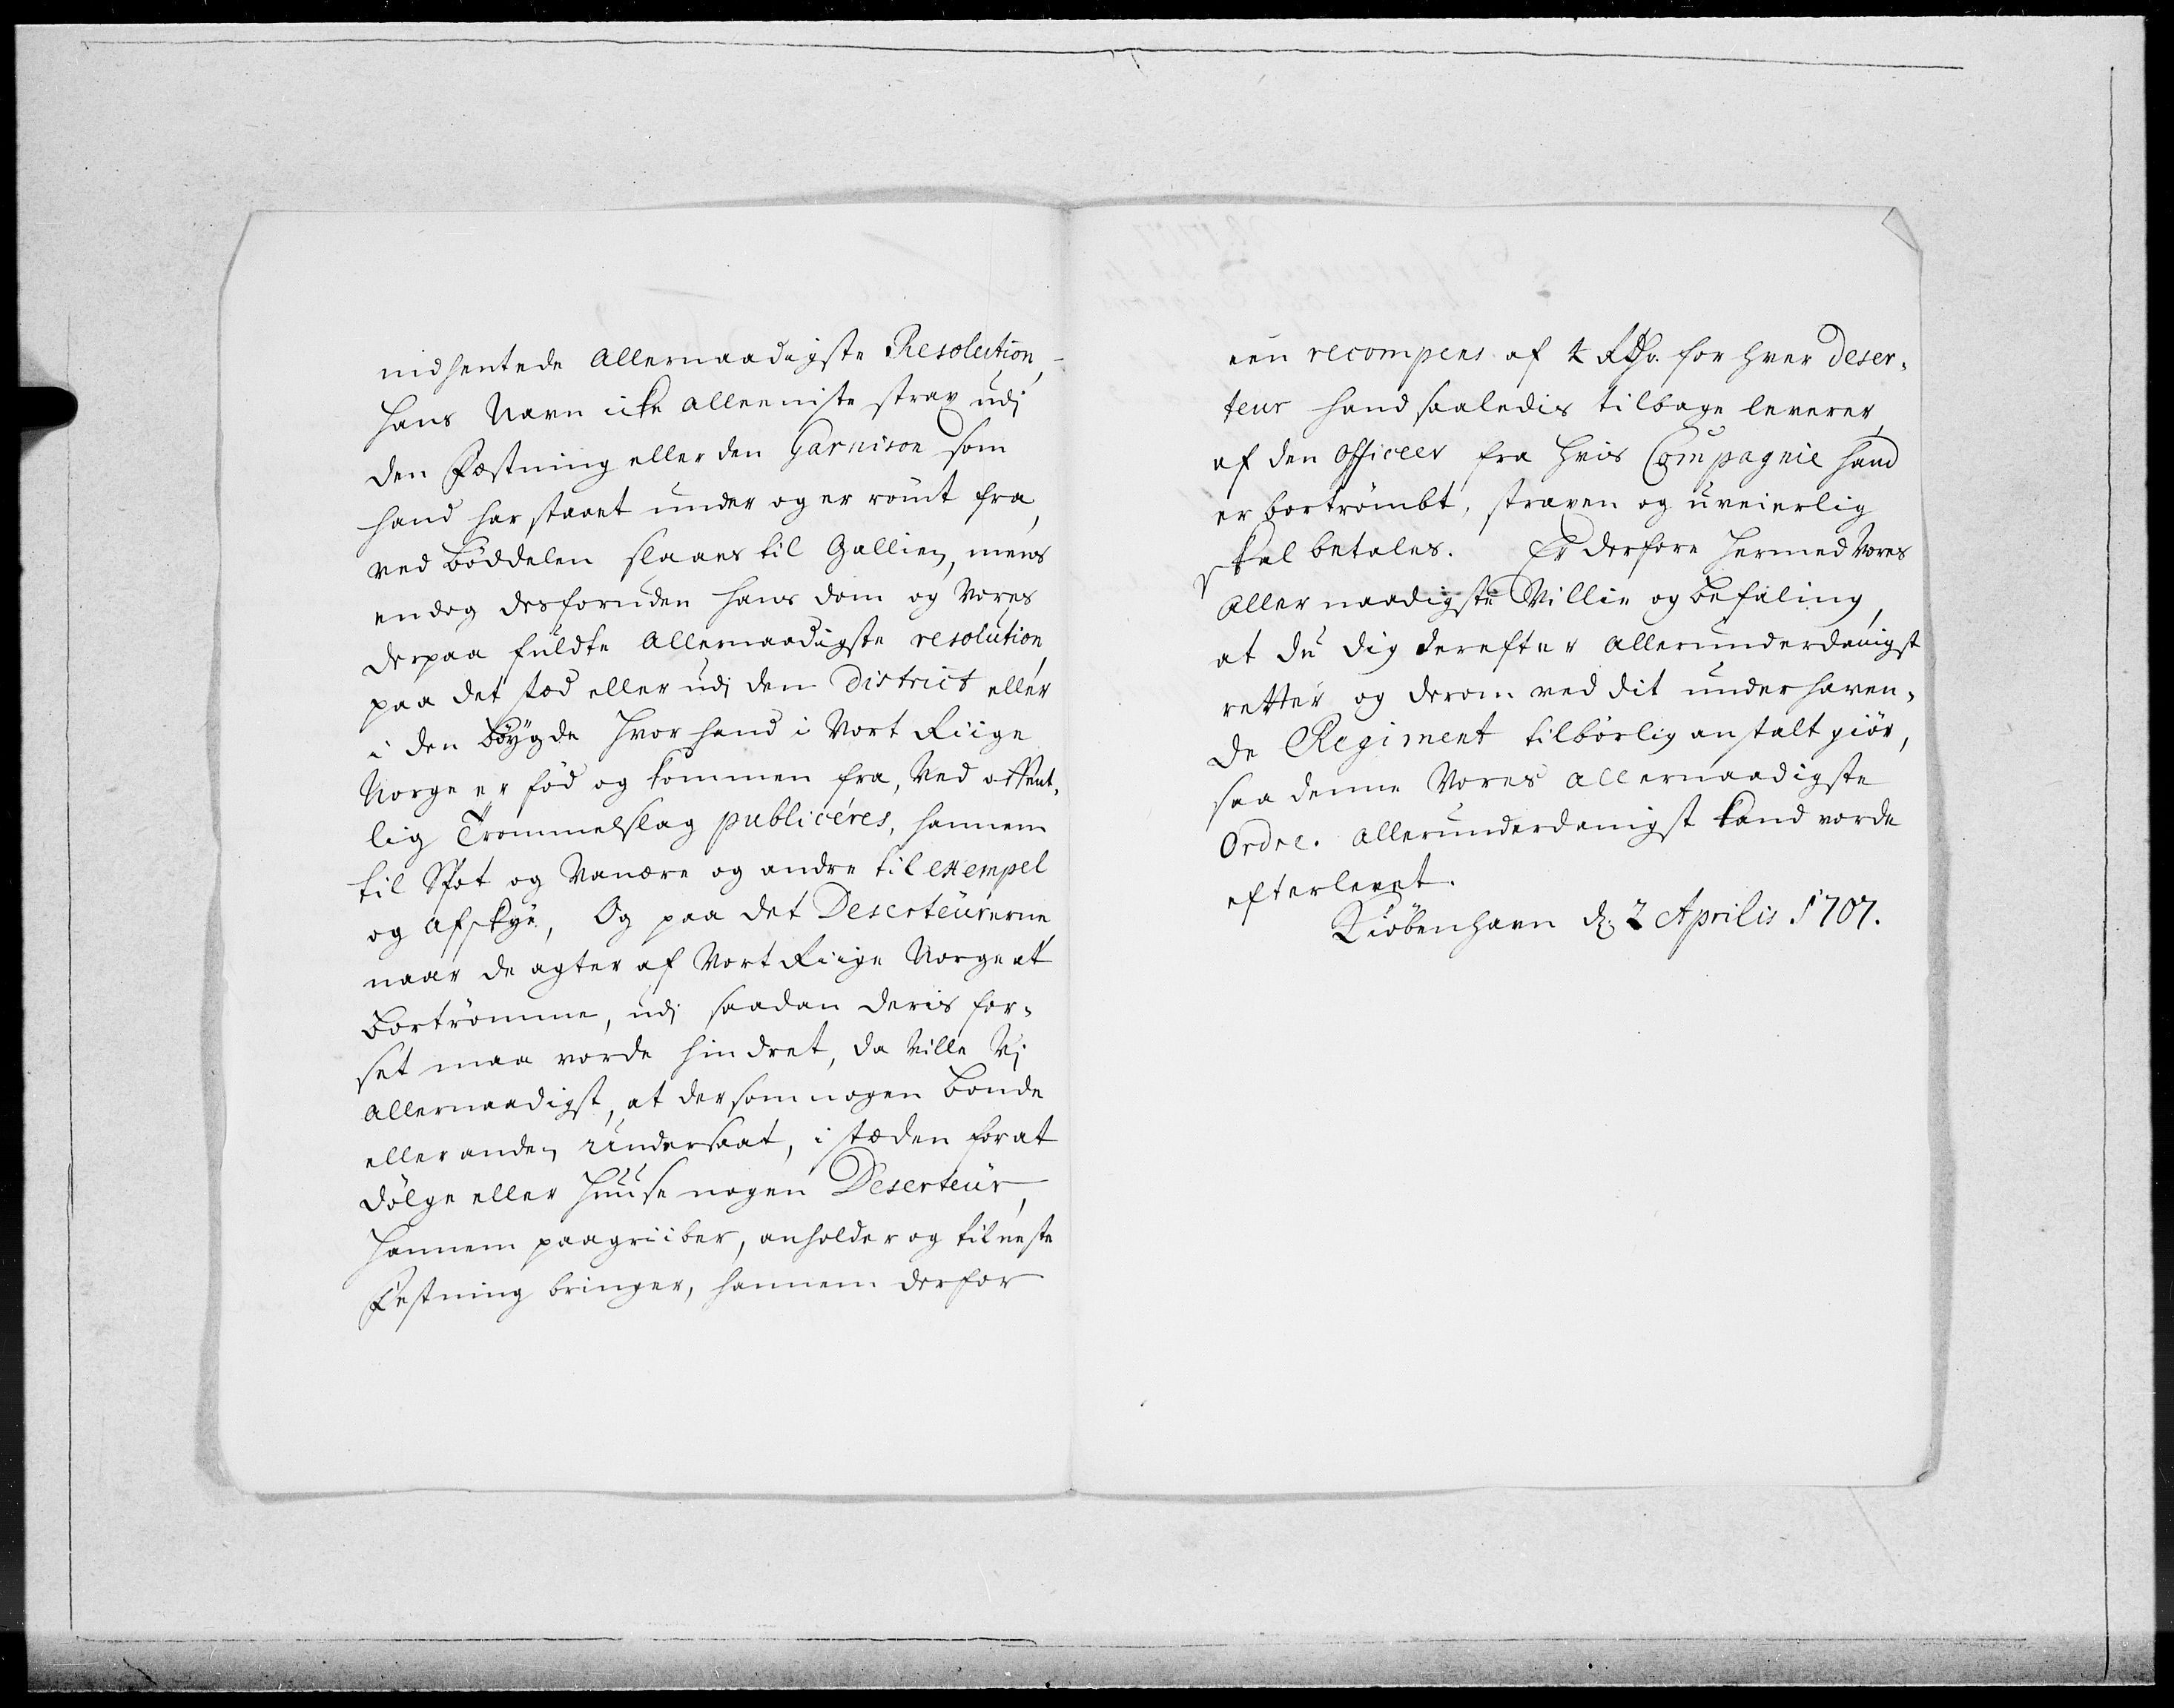 nidhentede Allernaadigste Resolution,
Hans Navn icke alleeniste strax udi
den Fæstning eller den Garnison som
hand har staaet under og er römt fra,
ved Böddelen slaaes til Gallien, mens
endog desforuden hans dom og Vores
derpaa fuldte Allernaadigste resolution,
paa det stæd eller udi den District eller
i den Böygde hvor hand i Vort Riige
Norge er föd og kommen fra, Ved offent-
lig Trommelslag publicéres, hannem
til Spot og Vanære og andre til exempel
og afskye, Og paa det Deserteurerne
naar de agter af Vort Riige Norge at
Bortrömme, udi saadan deris for-
set maa vorde hindret, da Ville Vi
allernaadigst, at dersom nogen Bonde
eller anden Undersaat, i stæden for at
dölge eller Huuse nogen Deserteur,
Hannem paagriiber, anholder og til neste
Festning bringer, hannem derfor
een recompens af 4 Rdr. for hver deser-
teur hand saaledis tilbage leverer,
af den Officeer fra hvis Compagnie hand
er bortrömbt, straxen og uveierlig
skal betales. Er derfore hermed Vores
Allernaadigste Villie og Befaling,
at du dig derefter allerunderdanigst
retter og derom ved dit underhaven-
de Regiment tilbörlig anstalt giör,
saa denne Vores allernaadigste
Ordre. allerunderdanigst kand vorde
efterlevet.
Kiöbenhavn d. 2 Aprilis 1707.